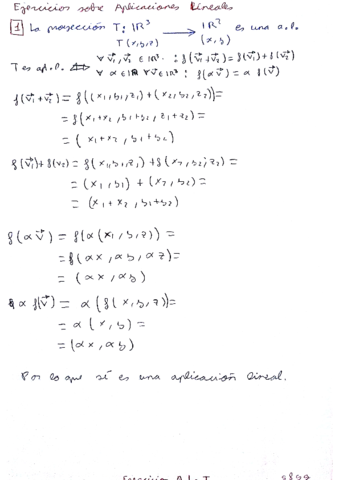 Ejercicios sobre Aplicaciones Lineales
1 La proyección T: ℝ³ → ℝ² es una a.l.
T(x,y,z) (x,y)
T es apl. l. ⇔ ∀ v₁, v₂ ∈ ℝ³ : f(v₁+v₂) = f(v₁)+f(v₂)
∀ α ∈ ℝ ∀ v ∈ ℝ³ : f(αv) = α f(v)
f(v₁+v₂) = f((x₁,y₁,z₁)+(x₂,y₂,z₂)) =
= f(x₁+x₂, y₁+y₂, z₁+z₂) =
= (x₁+x₂, y₁+y₂)
f(v₁)+f(v₂) = f(x₁,y₁,z₁) + f(x₂,y₂,z₂) =
= (x₁,y₁) + (x₂,y₂) =
= (x₁+x₂, y₁+y₂)
f(αv) = f(α(x₁,y,z)) =
= f(αx, αy, αz) =
= (αx, αy)
α f(v) = α(f(x,y,z)) =
= α(x,y) =
= (αx, αy)
Por lo que sí es una aplicación lineal.